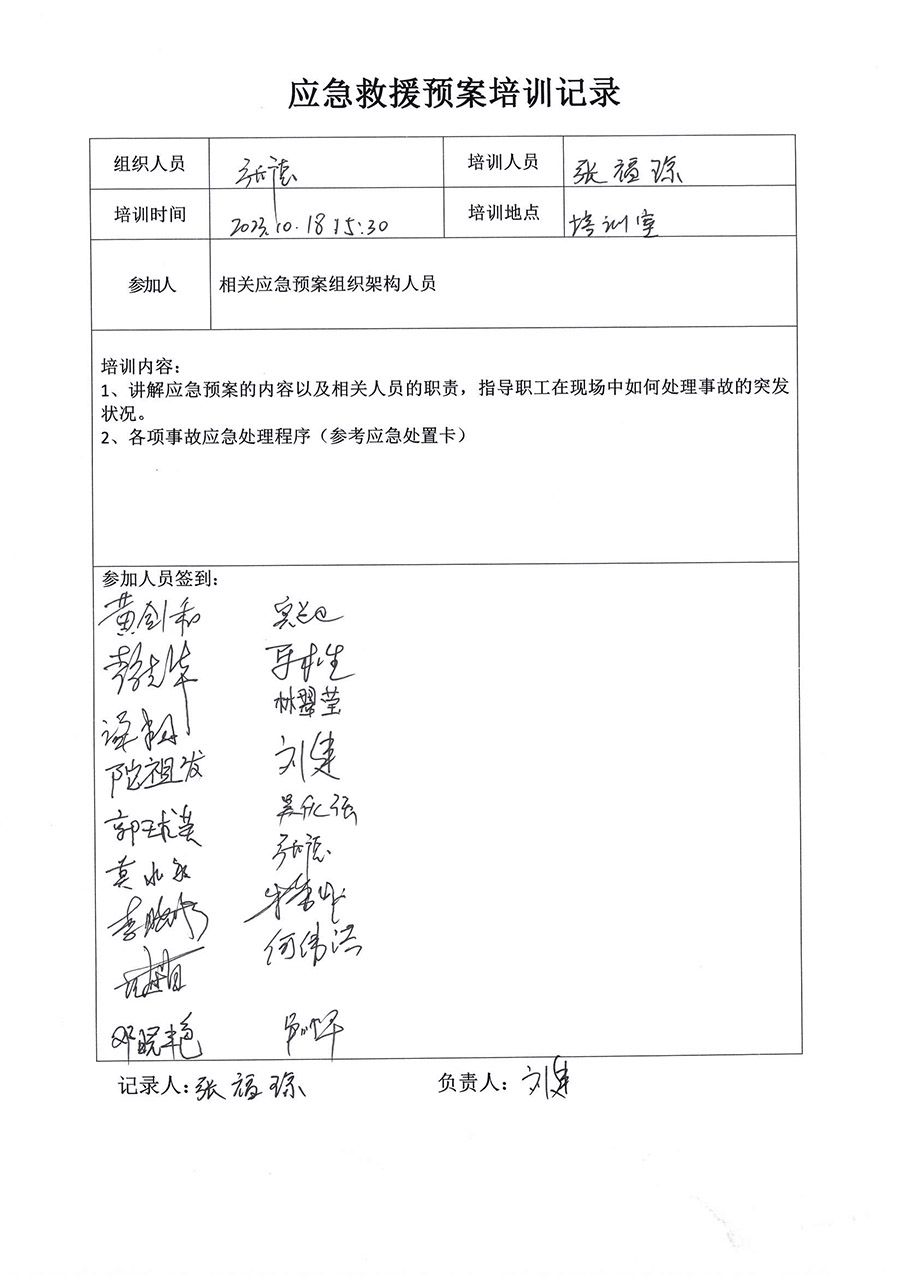 应急救援预案培训记录
组织人员 张德 培训人员 张福琼
培训时间 2023.10.18 15:30 培训地点 培训室
参加人 相关应急预案组织架构人员
培训内容：
1、讲解应急预案的内容以及相关人员的职责，指导职工在现场中如何处理事故的突发
状况。
2、各项事故应急处理程序（参考应急处置卡）
参加人员签到：
黄剑和
林翠莹
陀祖发 刘建
郭球英
莫水
张德
李
何伟洪
邓晓艳
记录人：张福琼 负责人：刘建